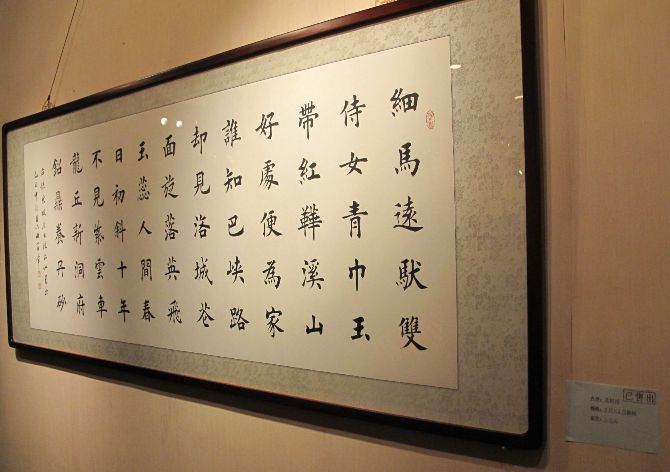 細馬遠馱雙
侍女青巾玉
帶紅鞾溪山
好處便為家
誰知巴峽路
却見洛城花
面旋落英飛
玉蕊人間春
日初斜十年
不見紫雲車
龍丘新洞府
鉛鼎養丹砂
已售出